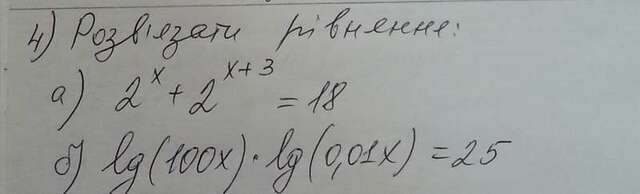 4) Розв'язати рівняння:
а) 2^x + 2^(x+3) = 18
б) lg(100x)·lg(0,01x) = 25